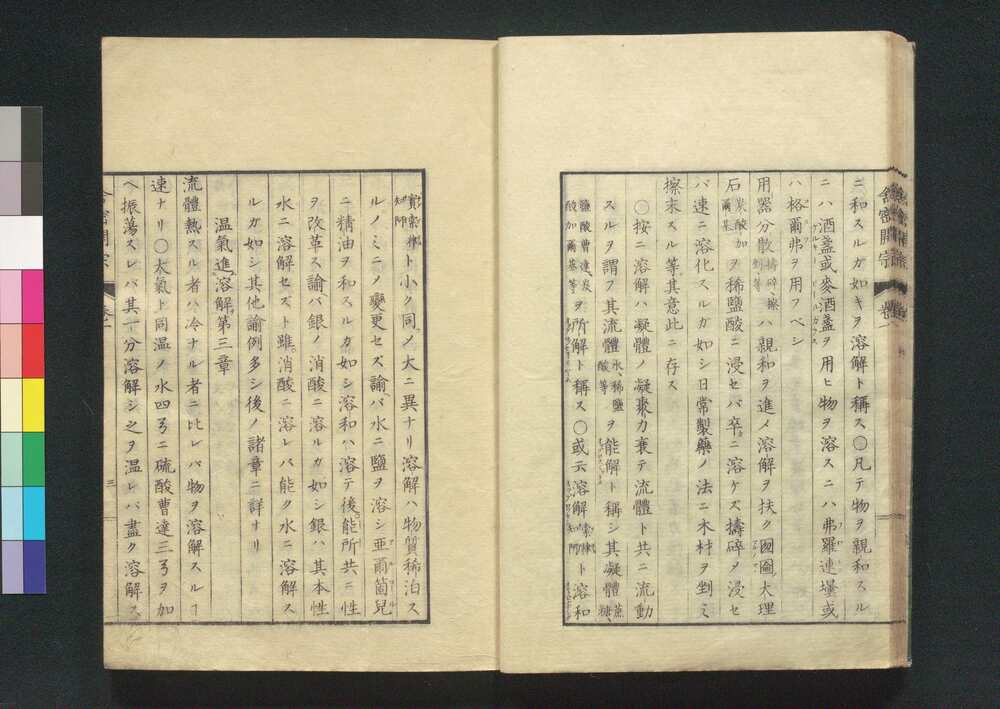 ニ和スルガ如キヲ溶解ト稱ス〇凡テ物ヲ親和スル
ニハ酒盞或麥酒盞ヲ用ヒ物ヲ溶スニハ弗羅連壜或
ハ格爾弗ヲ用フベシ
用器分散擣碎擦剉等ハ親和ヲ進メ溶解ヲ扶ク圀圇大理
石炭酸加爾基ヲ稀鹽酸ニ浸セバ卒ニ溶ケズ擣碎メ浸セ
バ速ニ溶化スルガ如シ日常製藥ノ法ニ木材ヲ剉ミ
擦末スル等其意此ニ存ス
〇按ニ溶解ハ凝體ノ凝聚力衰テ流體ト共ニ流動
スルヲ謂フ其流體水、稀鹽酸等ヲ能解ト稱シ其凝體蔗糖、
鹽酸曹達、炭酸加爾基等ヲ所解ト稱ス〇或云溶解ト溶和
ト小ク同メ大ニ異ナリ溶解ハ物質稀泊ス
ルノミニメ變更セズ諭バ水ニ鹽ヲ溶シ亜爾箇兒
ニ精油ヲ和スルガ如シ溶和ハ溶テ後能所共ニ性
ヲ改革ス諭バ銀ノ消酸ニ溶ルガ如シ銀ハ其本性
水ニ溶解セズト雖消酸ニ溶レバ能ク水ニ溶解ス
ルガ如シ其他諭例多シ後ノ諸章ニ詳ナリ
溫氣進溶解第三章
流體熱スル者ハ冷ナル者ニ比レバ物ヲ溶解スルヿ
速ナリ〇大氣ト同温ノ水四弓ニ硫酸曹達三弓ヲ加
ヘ振蕩スレバ其一分溶解シ之ヲ温レバ盡ク溶解ス
舎密開宗
卷一
三